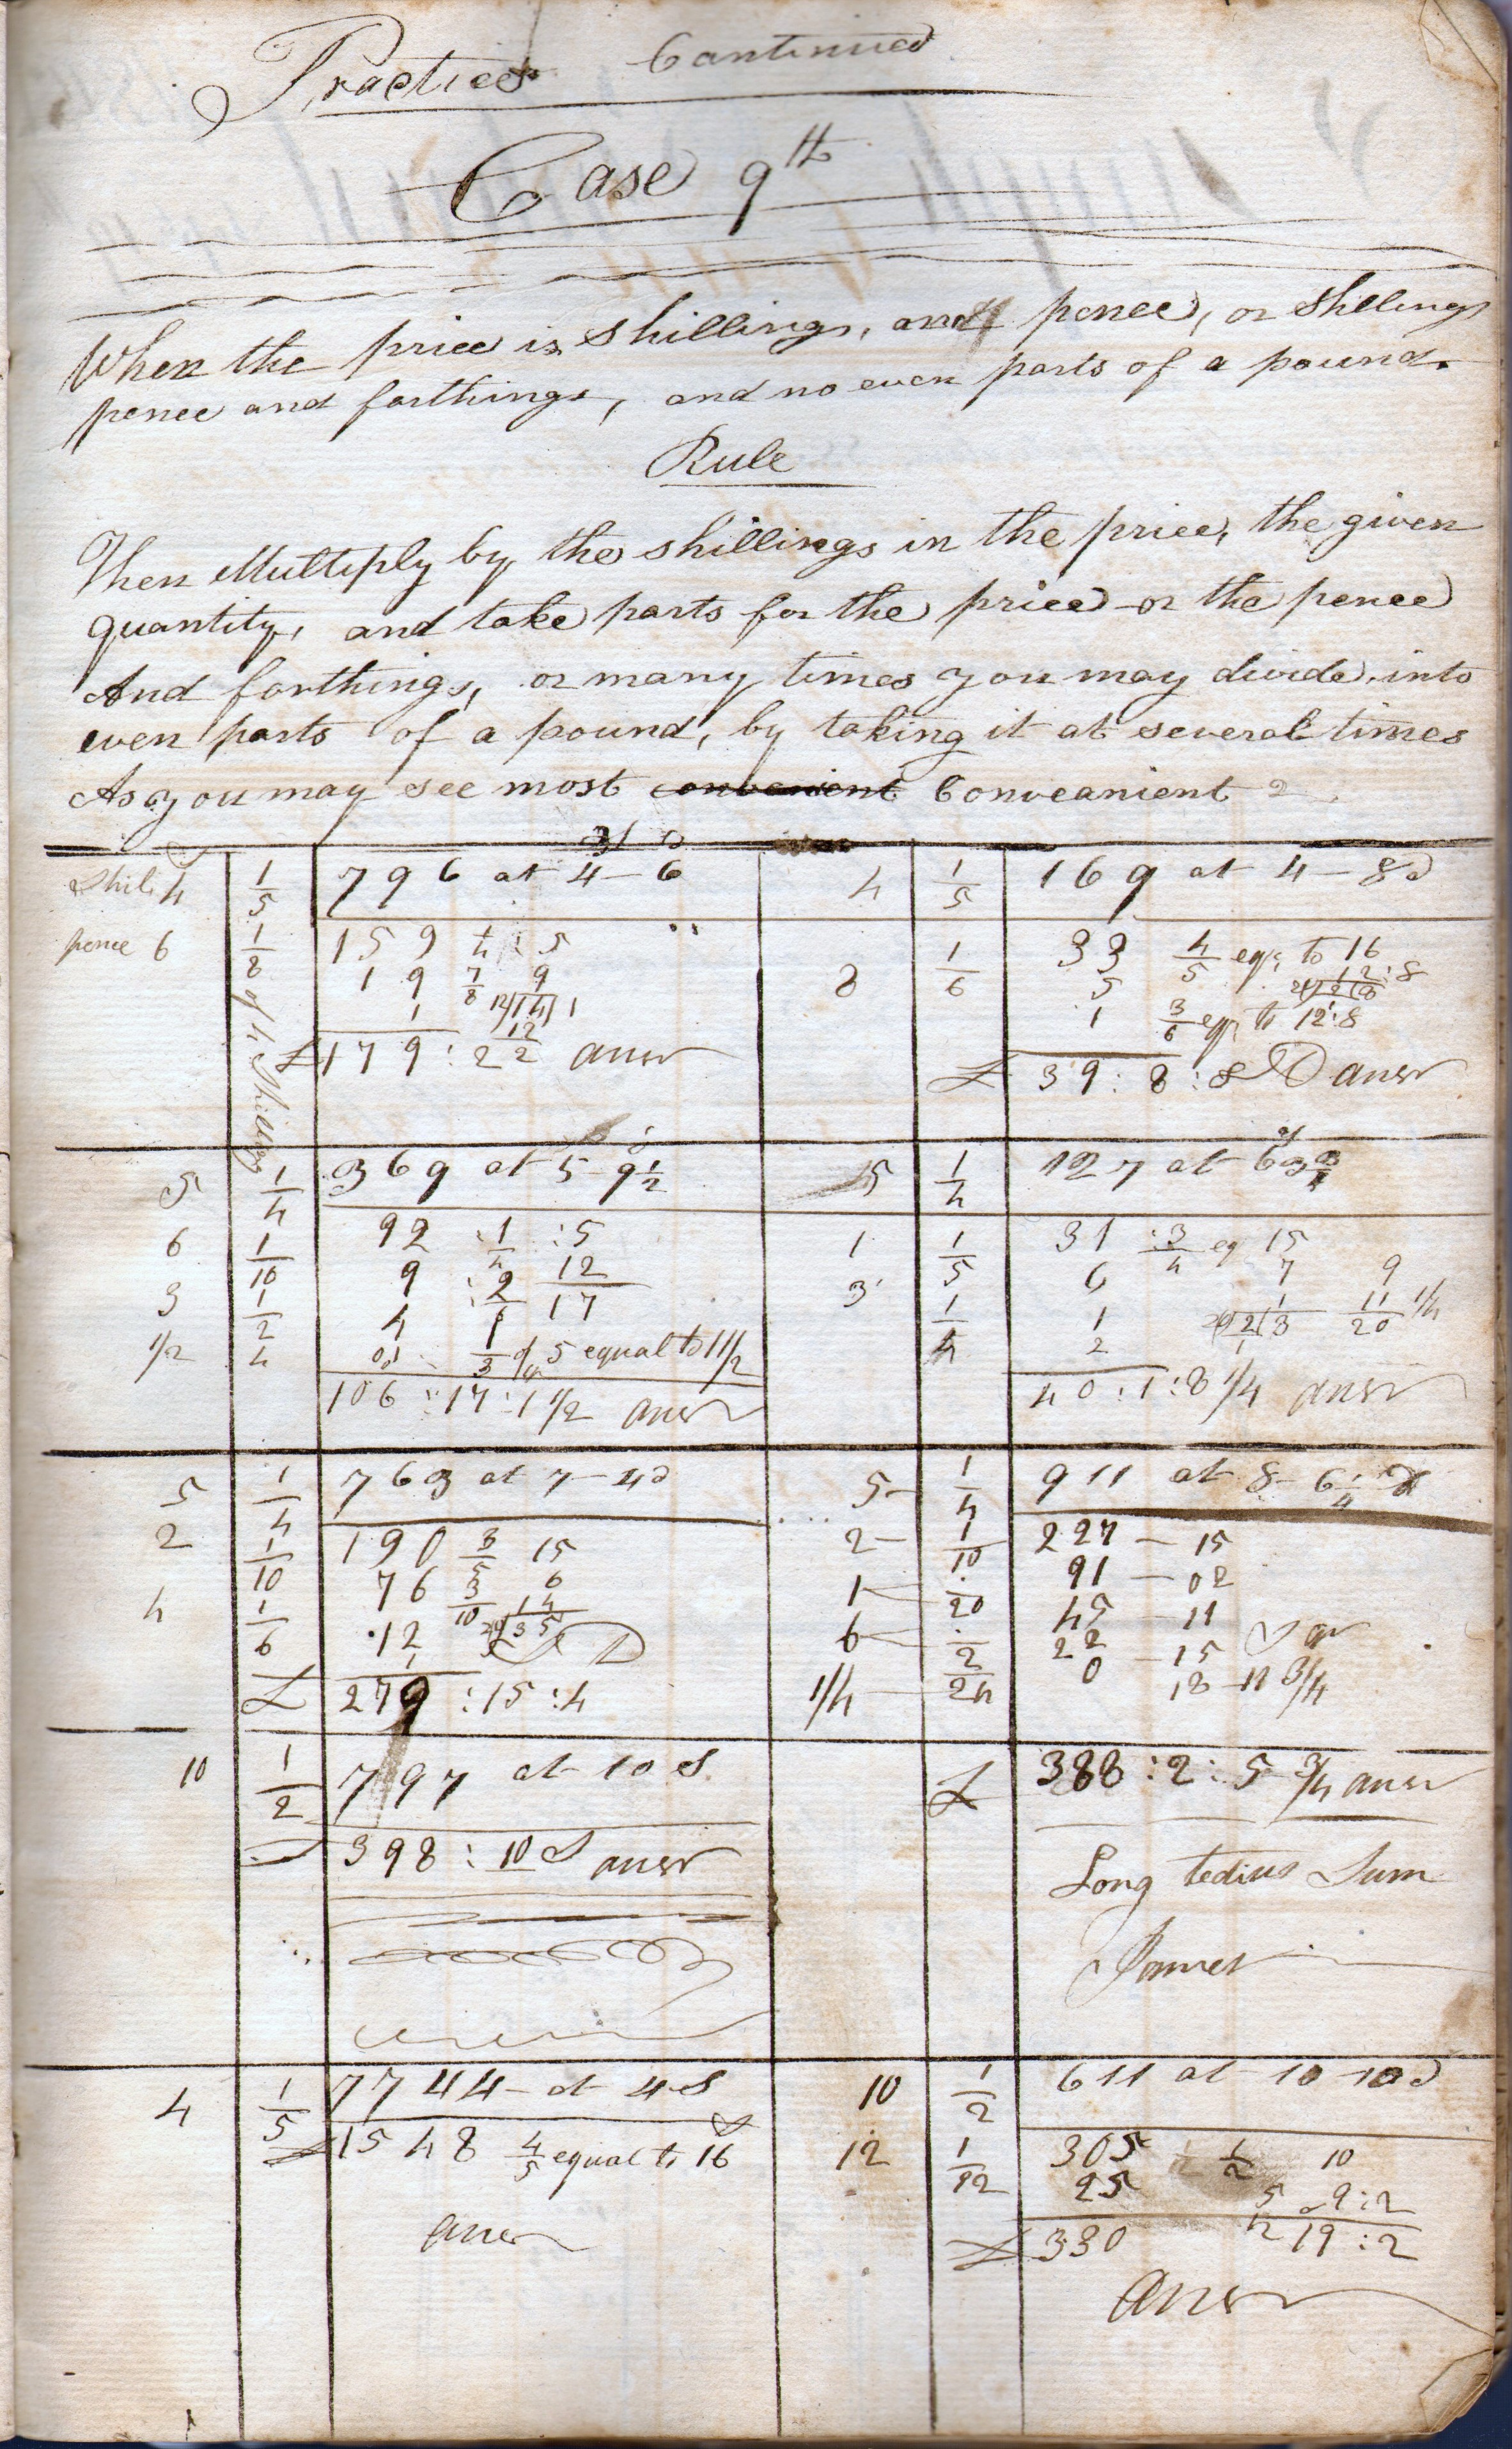 Practice Continued
Case 9th
When the price is shillings, and pence, or shillings
pence and farthings, and no even parts of a pound.
Rule
Then Multiply by the shillings in the price, the given
quantity, and take parts for the price or the pence
And farthings, or many times you may divide into
even parts of a pound, by taking it at several times
As you may see most convenient Conveanient
Shil. 4 1/5 796 at 4-6
pence 6 1/8 of 4 Shillings
159 4/5
19 7/8 9
1
£179:2 ansr
4 1/5 169 at 4-8d
8 1/6
33 4/5 eq. to 16
5 12:8
1 3/6 eq. to 12:8
£39:8:8 D ansr
5 1/4 369 at 5 9 1/2
6 1/10 92 :1/4 :5
3 1/2 9 12
1/2 4 17
1/3 of 5 equal to 1 1/2
106:17:1 1/2 ansr
5 1/4 127 at 6 3 3/4
1 1/5 31 :3/4 eq 15
3 1/4 6 7 9
1
2
40:1:8 1/4 ansr
5 1/4 763 at 7-4d
2 1/10 190 3/5 15
4 1/6 76 3/10 6
12 14
£279:15:4
5- 1/4 911 at 8-6 1/4
2- 1/10 227-15
1- 1/20 91-02
6- 1/2 45-11
1/4- 1/24 22-15
0 18-11 3/4
£388:2:5 3/4 ansr
Long tedius Sum
James
10 1/2 797 at 10 S
398:10 S ansr
4 1/5 7744 at 4S
£1548 4/5 equal to 16
ansr
10 1/2 611 at 10-10d
12 1/12 305 1/2 10
25 5/12 9:2
£330 19:2
Ansr